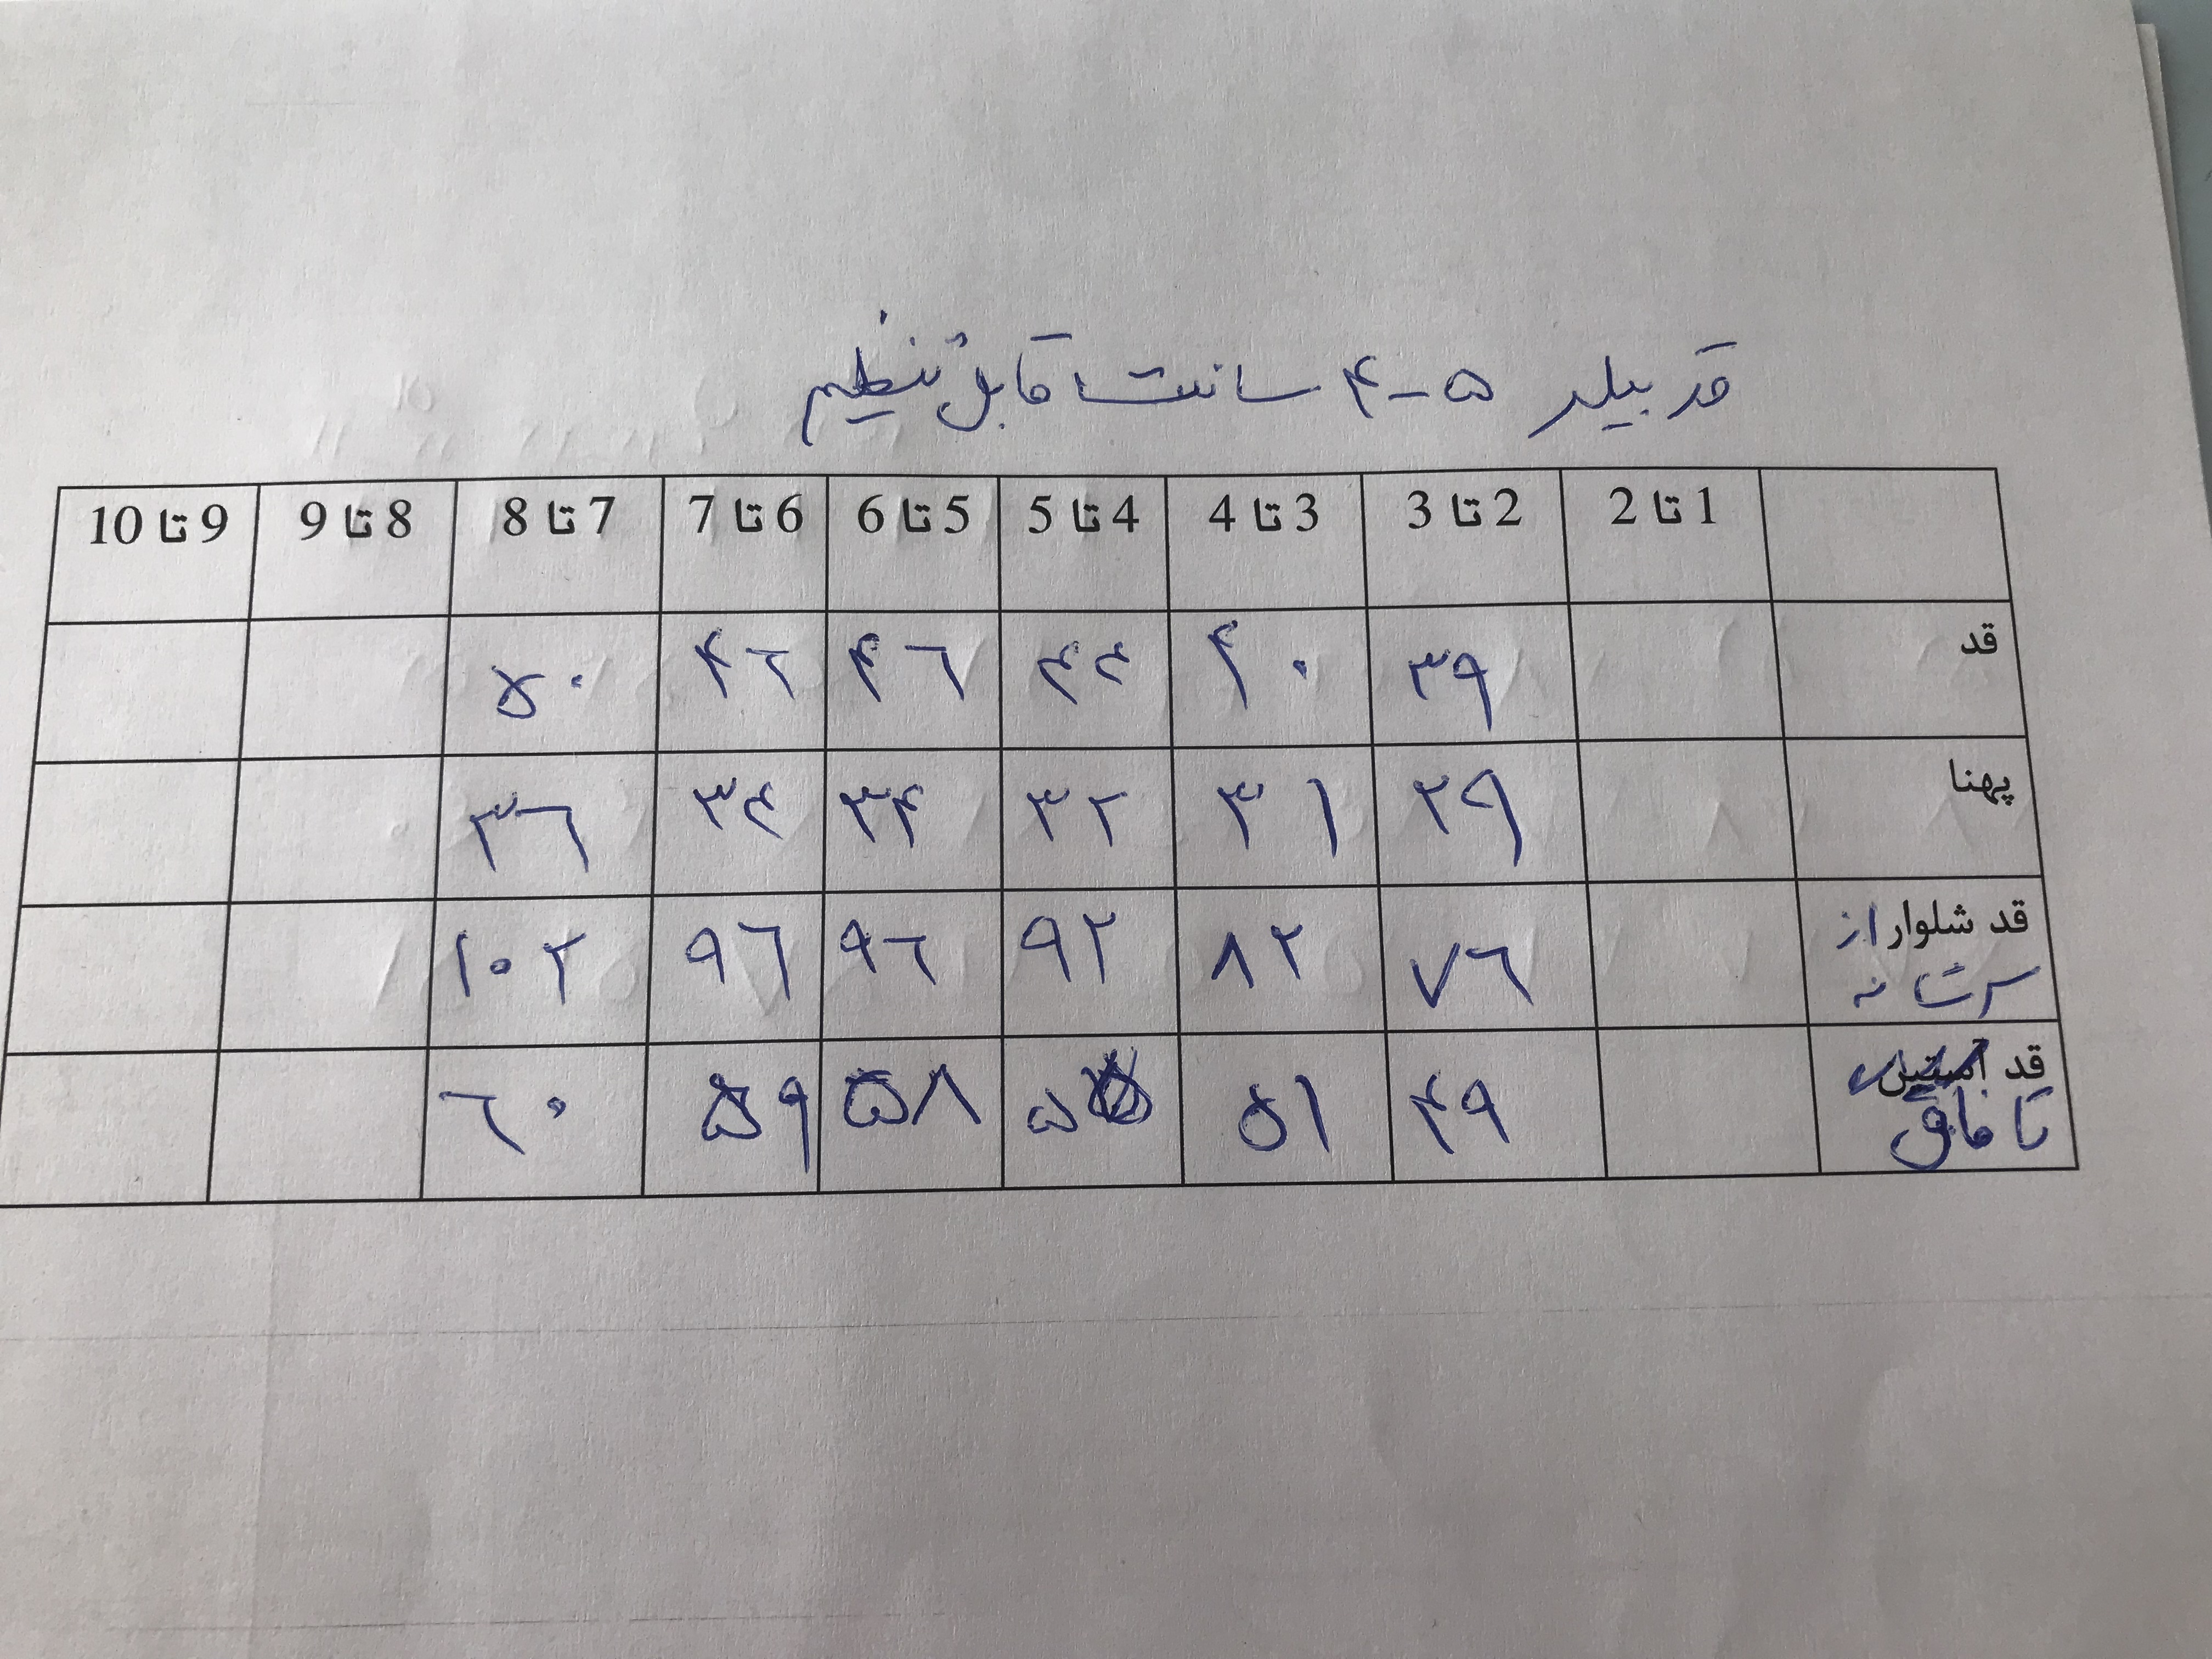 قد بیلر ۵-۴ سانت قابل تنظیم
1 تا 2 2 تا 3 3 تا 4 4 تا 5 5 تا 6 6 تا 7 7 تا 8 8 تا 9 9 تا 10
قد ۳۹ ۴۰ ۴۴ ۴۶ ۴۶ ۵۰
پهنا ۲۹ ۳۱ ۳۲ ۳۴ ۳۴ ۳۶
قد شلوار از ۷۶ ۸۲ ۹۲ ۹۶ ۹۶ ۱۰۲
سرشانه
قد ۴۹ ۵۱ ۵۸ ۵۹ ۶۰
تا فاق